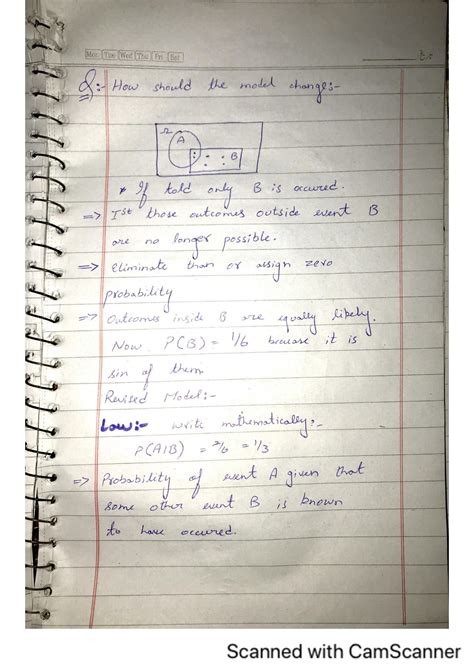 Mon Tue Wed Thu Fri Sat
Q:- How should the model changes:-
Ω
A
B
* If told only B is occured.
=> Ist those outcomes outside event B
are no longer possible.
=> eliminate than or assign zero
probability
=> Outcomes inside B are equally likely.
Now P(B) = 1/6 because it is
sin of them.
Revised Model:-
Low:- write mathematically:-
P(A|B) = 2/6 = 1/3
=> Probability of event A given that
some other event B is known
to have occured.
Scanned with CamScanner